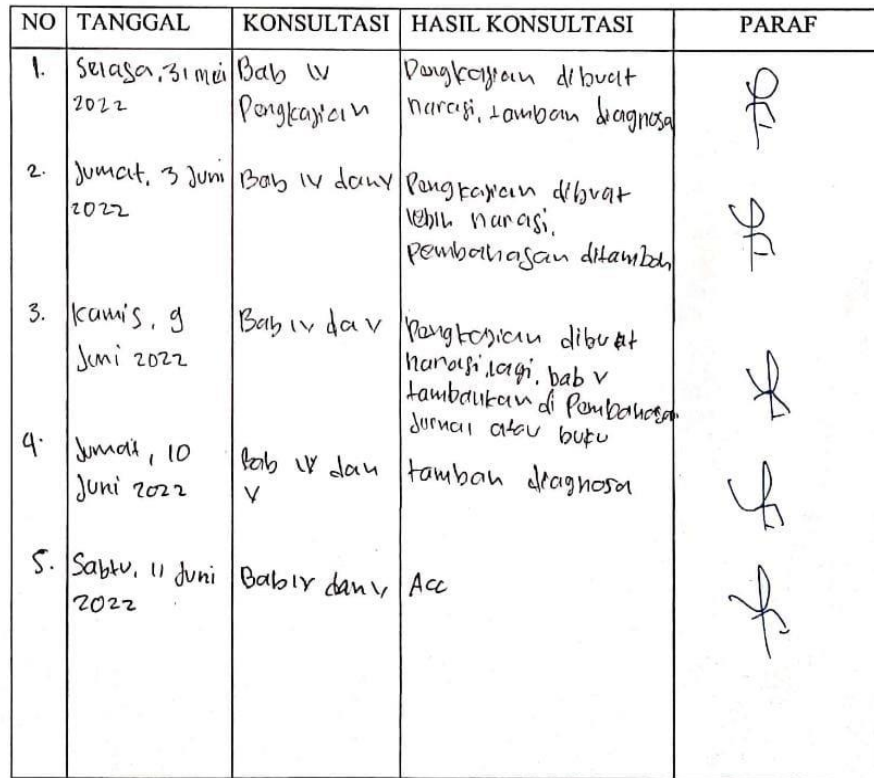 NO TANGGAL KONSULTASI HASIL KONSULTASI PARAF
1. Selasa, 31 mei 2022 Bab IV Pengkajian Pengkajian dibuat narasi, tambah diagnosa
2. Jumat, 3 Juni 2022 Bab IV dan V Pengkajian dibuat lebih narasi, pembahasan ditambah
3. Kamis, 9 Juni 2022 Bab IV da V Pengkajian dibuat narasi lagi, bab V tambahkan di Pembahasan Jurnal atau buku
4. Jumat, 10 Juni 2022 Bab IV dan V tambah diagnosa
5. Sabtu, 11 Juni 2022 Bab IV dan V Acc